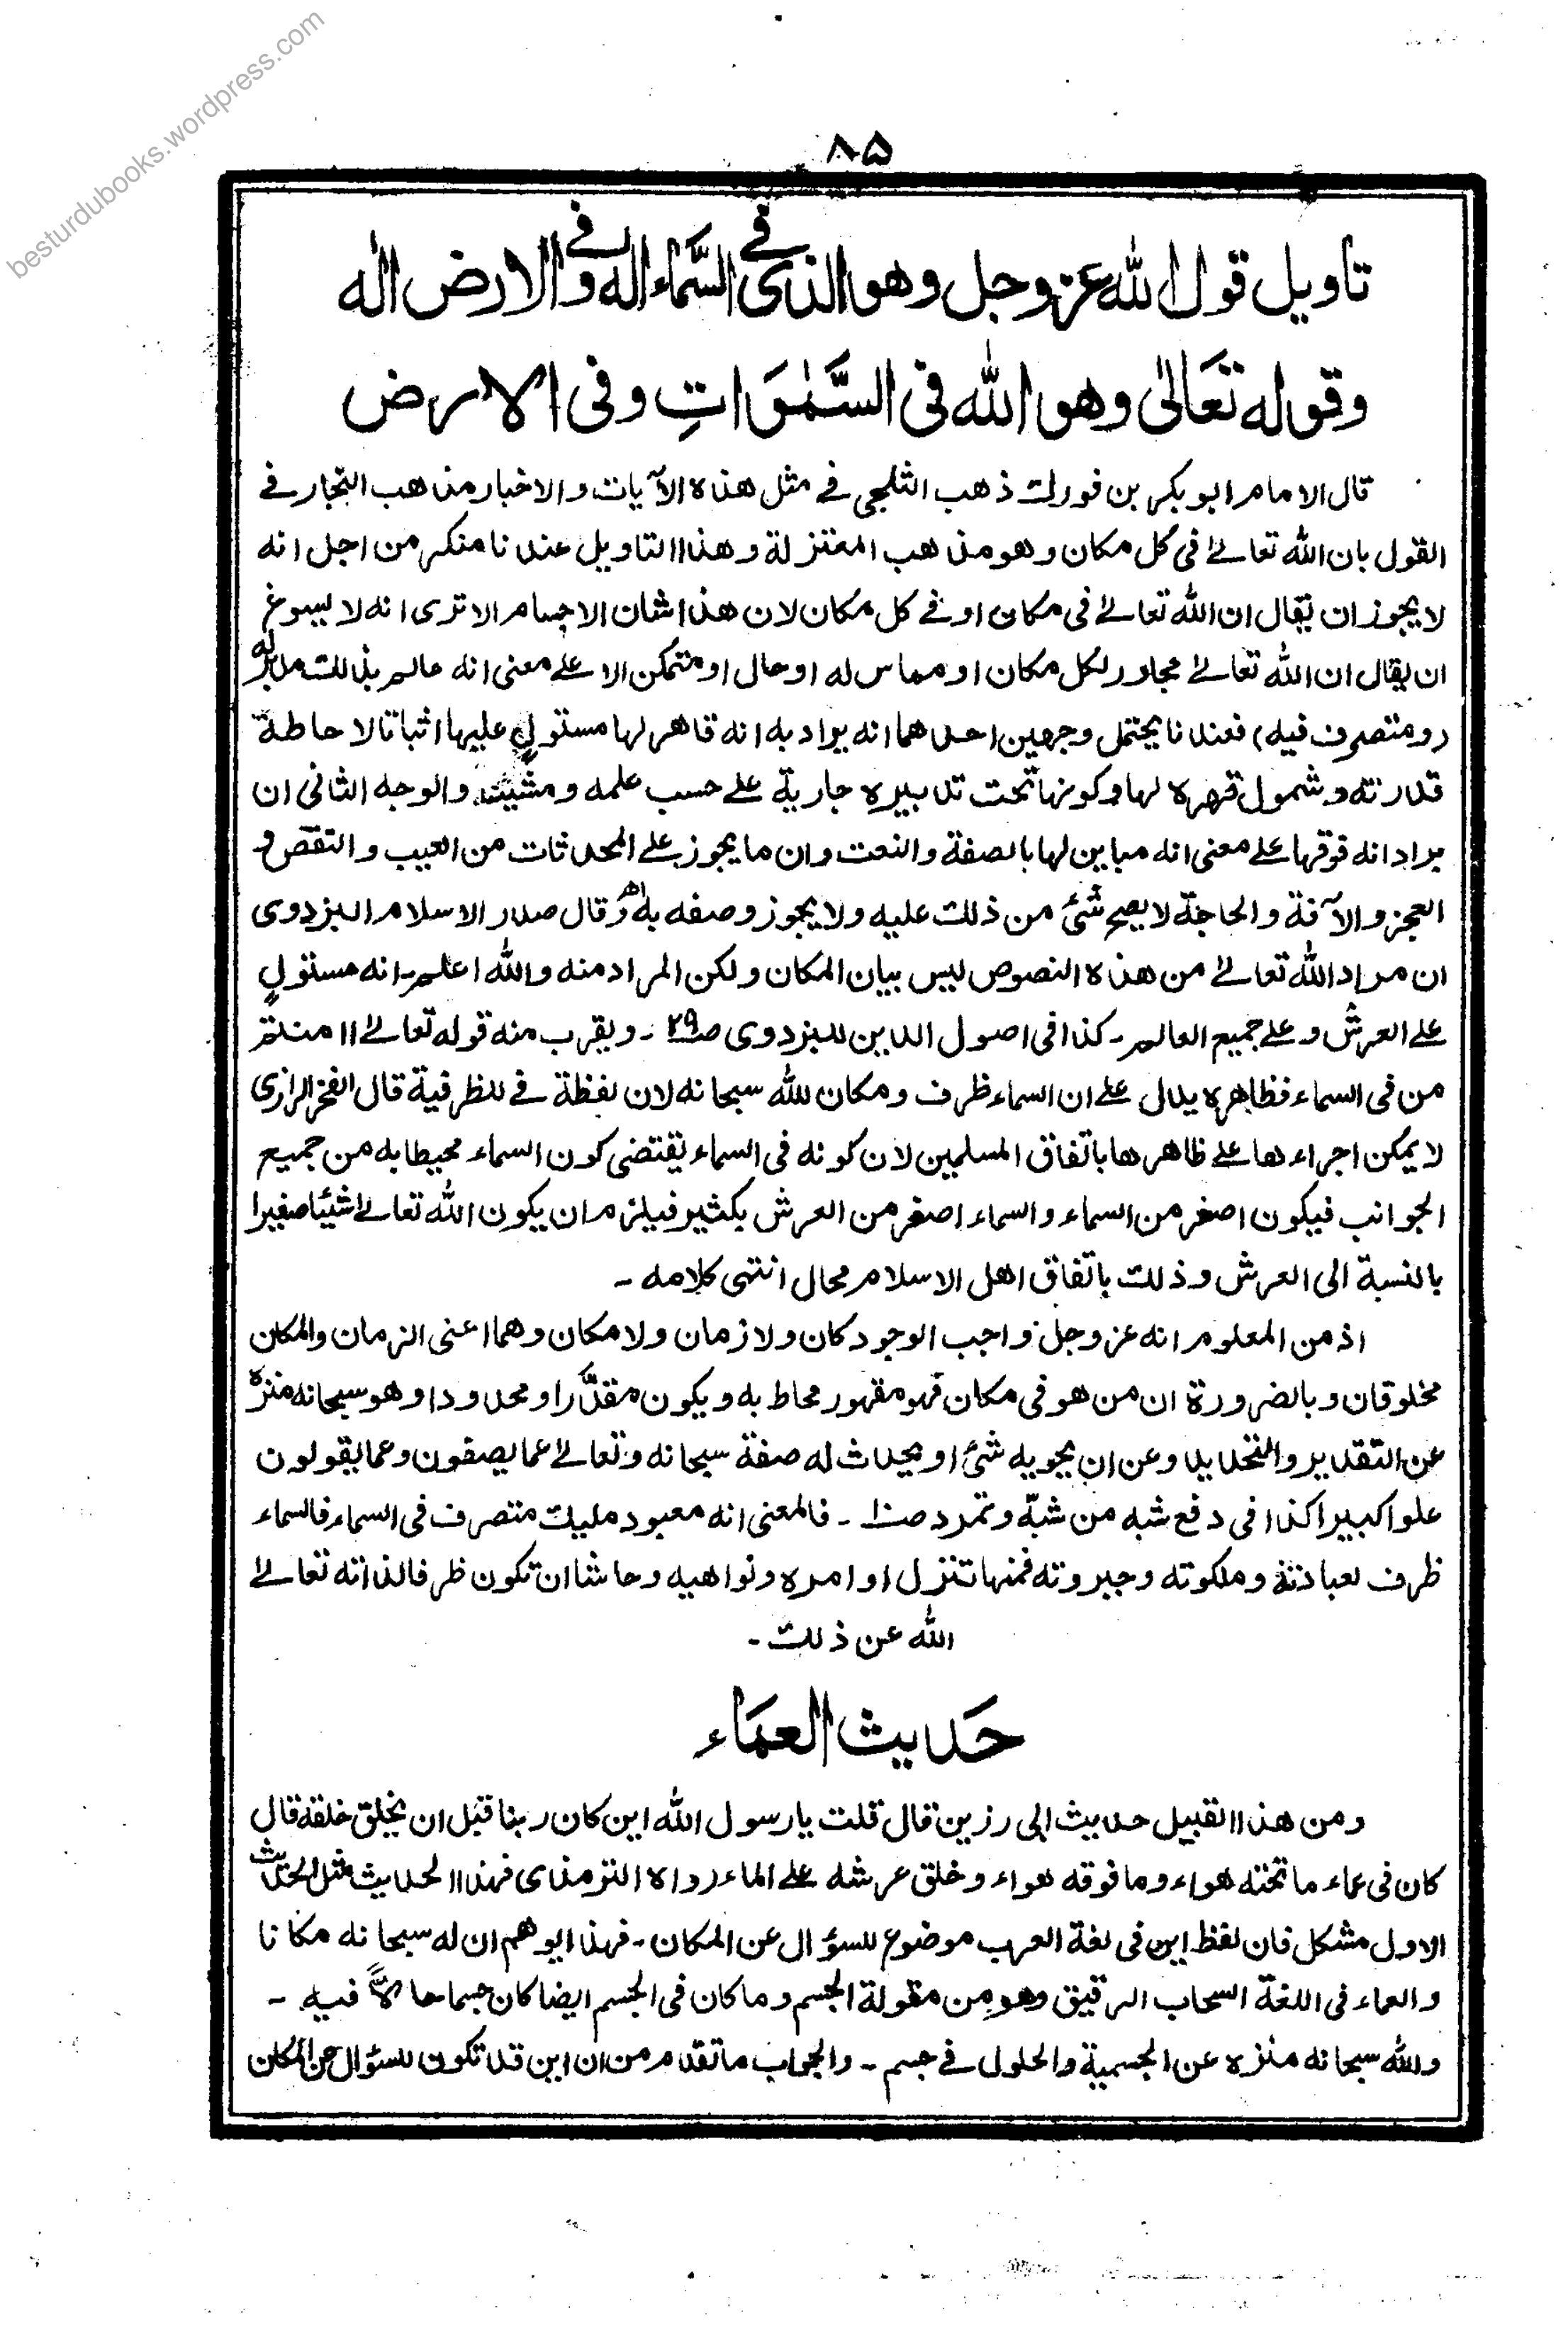 besturdubooks.wordpress.com
۸۵
تاويل قول الله عز وجل وهو الذى فى السَّمَاء اله وفى الارض اله
وقوله تَعَالىٰ وهو الله فى السَّمٰوَاتِ وفى الارض
قال الامام ابو بكر بن فورك ذهب الثلجى فے مثل هذه الآيات والاخبار مذهب النجار فے
القول بان الله تعالےٰ فى كل مكان وهو مذهب المعتزلة وهذا التاويل عندنا منكر من اجل انه
لا يجوز ان يقال ان الله تعالےٰ فى مكان او فے كل مكان لان هذا شان الاجسام الا ترى انه لا يسوغ
ان يقال ان الله تعالےٰ مجاور لكل مكان او مماس له او حال او متمكن الا علے معنى انه عالم بذلك مدبر له
(ومتصرف فيه) فعندنا يحتمل وجهين احدهما انه يراد به انه قاهر لها مستولٍ عليها اثباتا لاحاطة
قدرته وشمول قهره لها وكونها تحت تدبيره جارية علے حسب علمه ومشيئته والوجه الثانى ان
يراد انه فوقها علے معنى انه مباين لها بالصفة والنعت وان ما يجوز علے المحدثات من العيب والنقص و
العجز والآفة والحاجة لا يصح شئ من ذلك عليه ولا يجوز وصفه به اهـ وقال صدر الاسلام البزدوى
ان مراد الله تعالےٰ من هذه النصوص ليس بيان المكان ولكن المراد منه والله اعلم۔ انه مستولٍ
علے العرش وعلے جميع العالم۔ كذا فى اصول الدين للبزدوى صـ۲۹ ۔ ويقرب منه قوله تعالےٰ اامنتم
من فى السماء فظاهره يدل علے ان السماء ظرف ومكان لله سبحانه لان لفظة فے للظرفية قال الفخر الرازى
لا يمكن اجراءها علے ظاهرها باتفاق المسلمين لان كونه فى السماء يقتضى كون السماء محيطا به من جميع
الجوانب فيكون اصغر من السماء والسماء اصغر من العرش بكثير فيلزم ان يكون الله تعالےٰ شيئا صغيرا
بالنسبة الى العرش وذلك باتفاق اهل الاسلام محال انتهى كلامه ۔
اذ من المعلوم انه عز وجل واجب الوجود كان ولا زمان ولا مكان وهما اعنى الزمان والمكان
مخلوقان وبالضرورة ان من هو فى مكان فهو مقهور محاط به ويكون مقدَّرا ومحدودا وهو سبحانه منزه
عن التقدير والتحديد وعن ان يحويه شئ او يحدث له صفة سبحانه وتعالےٰ عما يصفون وعما يقولون
علوا كبيرا كذا فى دفع شبه من شبّه وتمرد صـ ۔ فالمعنى انه معبود مليك متصرف فى السماء فالسماء
ظرف لعبادته وملكوته وجبروته فمنها تنزل اوامره ونواهيه وحاشا ان تكون ظرفا لذاته تعالےٰ
الله عن ذلك ۔
حَديث العمَاء
ومن هذا القبيل حديث ابى رزين قال قلت يا رسول الله اين كان ربنا قبل ان يخلق خلقه قال
كان فى عماء ما تحته هواء وما فوقه هواء وخلق عرشه علے الماء رواه الترمذى فهذا الحديث مثل الحديث
الاول مشكل فان لفظ اين فى لغة العرب موضوع للسؤال عن المكان۔ فهذا يوهم ان له سبحانه مكانا
والعماء فى اللغة السحاب الرقيق وهو من مقولة الجسم وما كان فى الجسم ايضا كان جسما حالًّا فيه ۔
والله سبحانه منزه عن الجسمية والحلول فے جسم ۔ والجواب ما تقدم من ان اين قد تكون للسؤال عن المكان